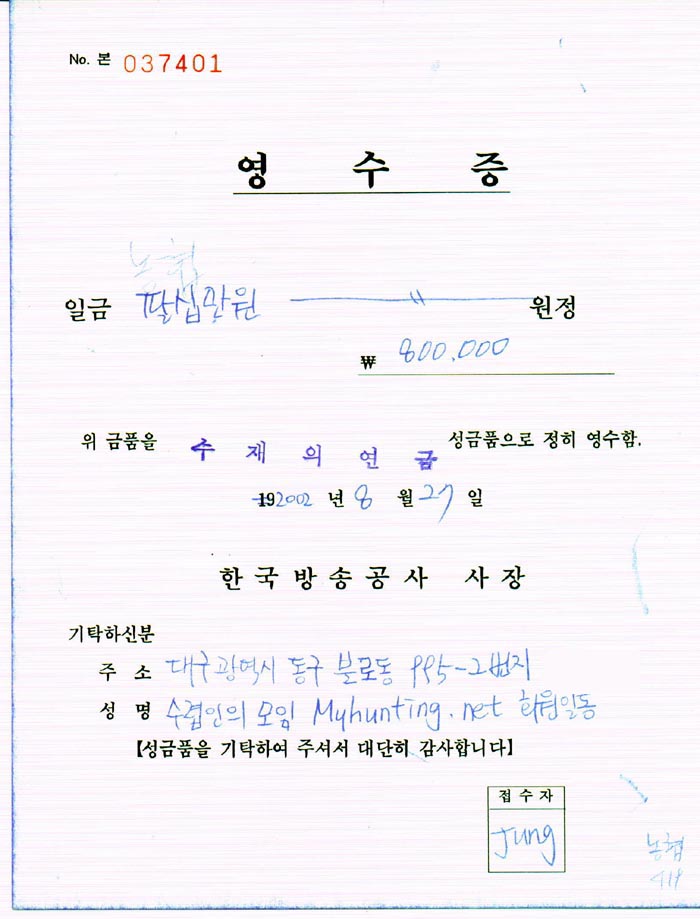 No. 본 037401
영 수 증
농협
일금 팔십만원 원정
₩ 800,000
위 금품을 수 재 의 연 금 성금품으로 정히 영수함.
19 2002 년 8 월 27 일
한국방송공사 사장
기탁하신분
주 소 대구광역시 동구 불로동 995-2번지
성 명 수렵인의 모임 Myhunting.net 회원일동
【성금품을 기탁하여 주셔서 대단히 감사합니다】
접 수 자
Jung
농협